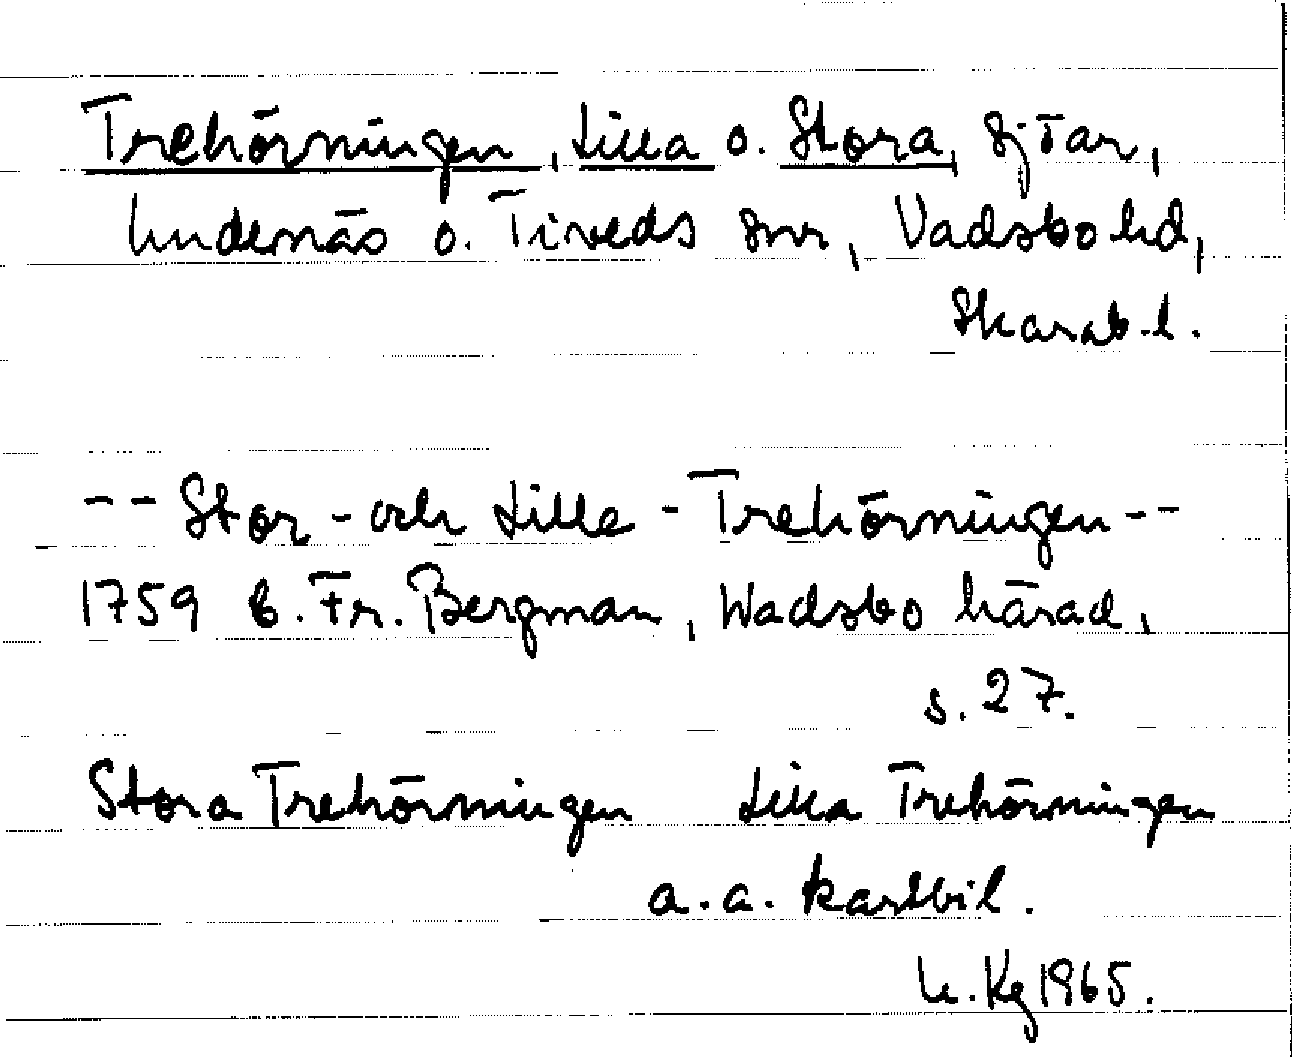 Trehörningen, Lilla o. Stora, sjöar,
Undenäs o. Tiveds snr, Vadsbo hd,
Skarab.l.
-- Stor- och Lille-Trehörningen --
1759 B. Fr. Bergman, Wadsbo härad,
s. 27.
Stora Trehörningen Lilla Trehörningen
a.a. kartbil.
Kg 1965.